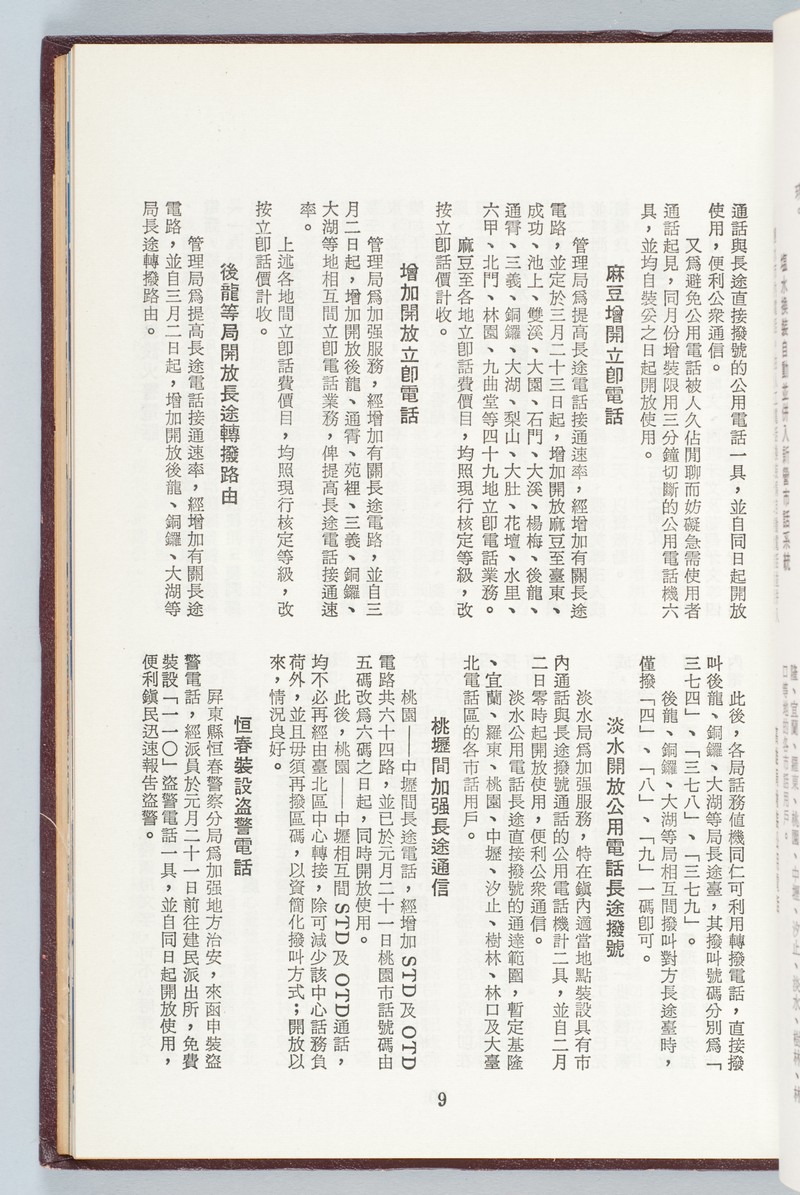 通話與長途直接撥號的公用電話一具，並自同日起開放
使用，便利公衆通信。
又爲避免公用電話被人久佔閒聊而妨礙急需使用者
通話起見，同月份增裝限用三分鐘切斷的公用電話機六
具，並均自裝妥之日起開放使用。
麻豆增開立卽電話
管理局爲提高長途電話接通速率，經增加有關長途
電路，並定於三月二十三日起，增加開放麻豆至臺東、
成功、池上、雙溪、大園、石門、大溪、楊梅、後龍、
通霄、三義、銅鑼、大湖、梨山、大肚、花壇、水里、
六甲、北門、林園、九曲堂等四十九地立卽電話業務。
麻豆至各地立卽話費價目，均照現行核定等級，改
按立卽話價計收。
增加開放立卽電話
管理局爲加强服務，經增加有關長途電路，並自三
月二日起，增加開放後龍、通霄、苑裡、三義、銅鑼、
大湖等地相互間立卽電話業務，俾提高長途電話接通速
率。
上述各地間立卽話費價目，均照現行核定等級，改
按立卽話價計收。
後龍等局開放長途轉撥路由
管理局爲提高長途電話接通速率，經增加有關長途
電路，並自三月二日起，增加開放後龍、銅鑼、大湖等
局長途轉撥路由。
此後，各局話務値機同仁可利用轉撥電話，直接撥
叫後龍、銅鑼、大湖等局長途臺，其撥叫號碼分別爲「
三七四」、「三七八」、「三七九」。
後龍、銅鑼、大湖等局相互間撥叫對方長途臺時，
僅撥「四」、「八」、「九」一碼卽可。
淡水開放公用電話長途撥號
淡水局爲加强服務，特在鎭內適當地點裝設具有市
內通話與長途撥號通話的公用電話機計二具，並自二月
二日零時起開放使用，便利公衆通信。
淡水公用電話長途直接撥號的通達範圍，暫定基隆
、宜蘭、羅東、桃園、中壢、汐止、樹林、林口及大臺
北電話區的各市話用戶。
桃壢間加强長途通信
桃園——中壢間長途電話，經增加 STD 及 OTD
電路共六十四路，並已於元月二十一日桃園市話號碼由
五碼改爲六碼之日起，同時開放使用。
此後，桃園——中壢相互間 STD 及 OTD 通話，
均不必再經由臺北區中心轉接，除可減少該中心話務負
荷外，並且毋須再撥區碼，以資簡化撥叫方式；開放以
來，情況良好。
恒春裝設盜警電話
屏東縣恒春警察分局爲加强地方治安，來函申裝盜
警電話，經派員於元月二十一日前往建民派出所，免費
裝設「一一〇」盜警電話一具，並自同日起開放使用，
便利鎭民迅速報告盜警。
9